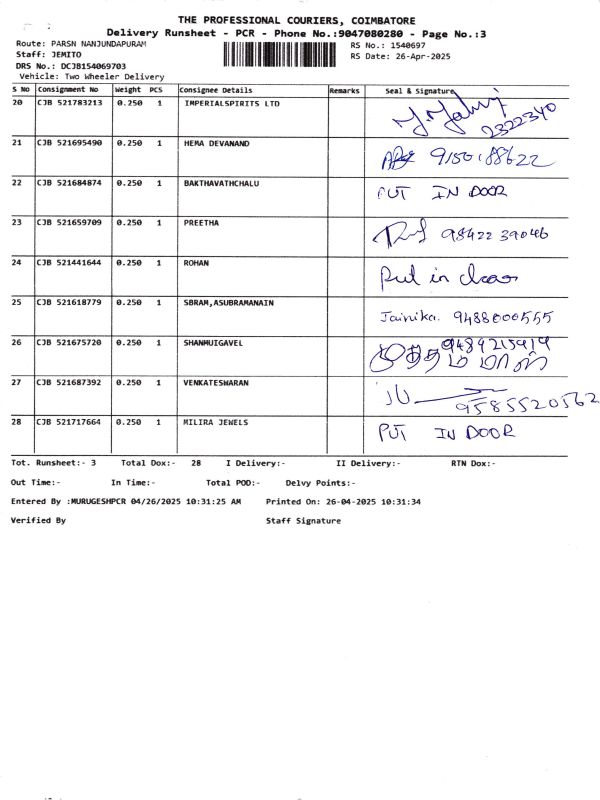 THE PROFESSIONAL COURIERS, COIMBATORE
Delivery Runsheet - PCR - Phone No.:9047080280 - Page No.:3
Route: PARSN NANJUNDAPURAM RS No.: 1540697
Staff: JEMITO RS Date: 26-Apr-2025
DRS No.: DCJB154069703
Vehicle: Two Wheeler Delivery
S No Consignment No Weight PCS Consignee Details Remarks Seal & Signature
20 CJB 521783213 0.250 1 IMPERIALSPIRITS LTD
2322340
21 CJB 521695490 0.250 1 HEMA DEVANAND 9150188622
22 CJB 521684874 0.250 1 BAKTHAVATHCHALU PUT IN DOOR
23 CJB 521659709 0.250 1 PREETHA 98422 39046
24 CJB 521441644 0.250 1 ROHAN Put in door
25 CJB 521618779 0.250 1 SBRAM,ASUBRAMANAIN Jainika. 9488000555
26 CJB 521675720 0.250 1 SHANMUIGAVEL
27 CJB 521687392 0.250 1 VENKATESWARAN 9585520562
28 CJB 521717664 0.250 1 MILIRA JEWELS PUT IN DOOR
Tot. Runsheet:- 3 Total Dox:- 28 I Delivery:- II Delivery:- RTN Dox:-
Out Time:- In Time:- Total POD:- Delvy Points:-
Entered By :MURUGESHPCR 04/26/2025 10:31:25 AM Printed On: 26-04-2025 10:31:34
Verified By Staff Signature